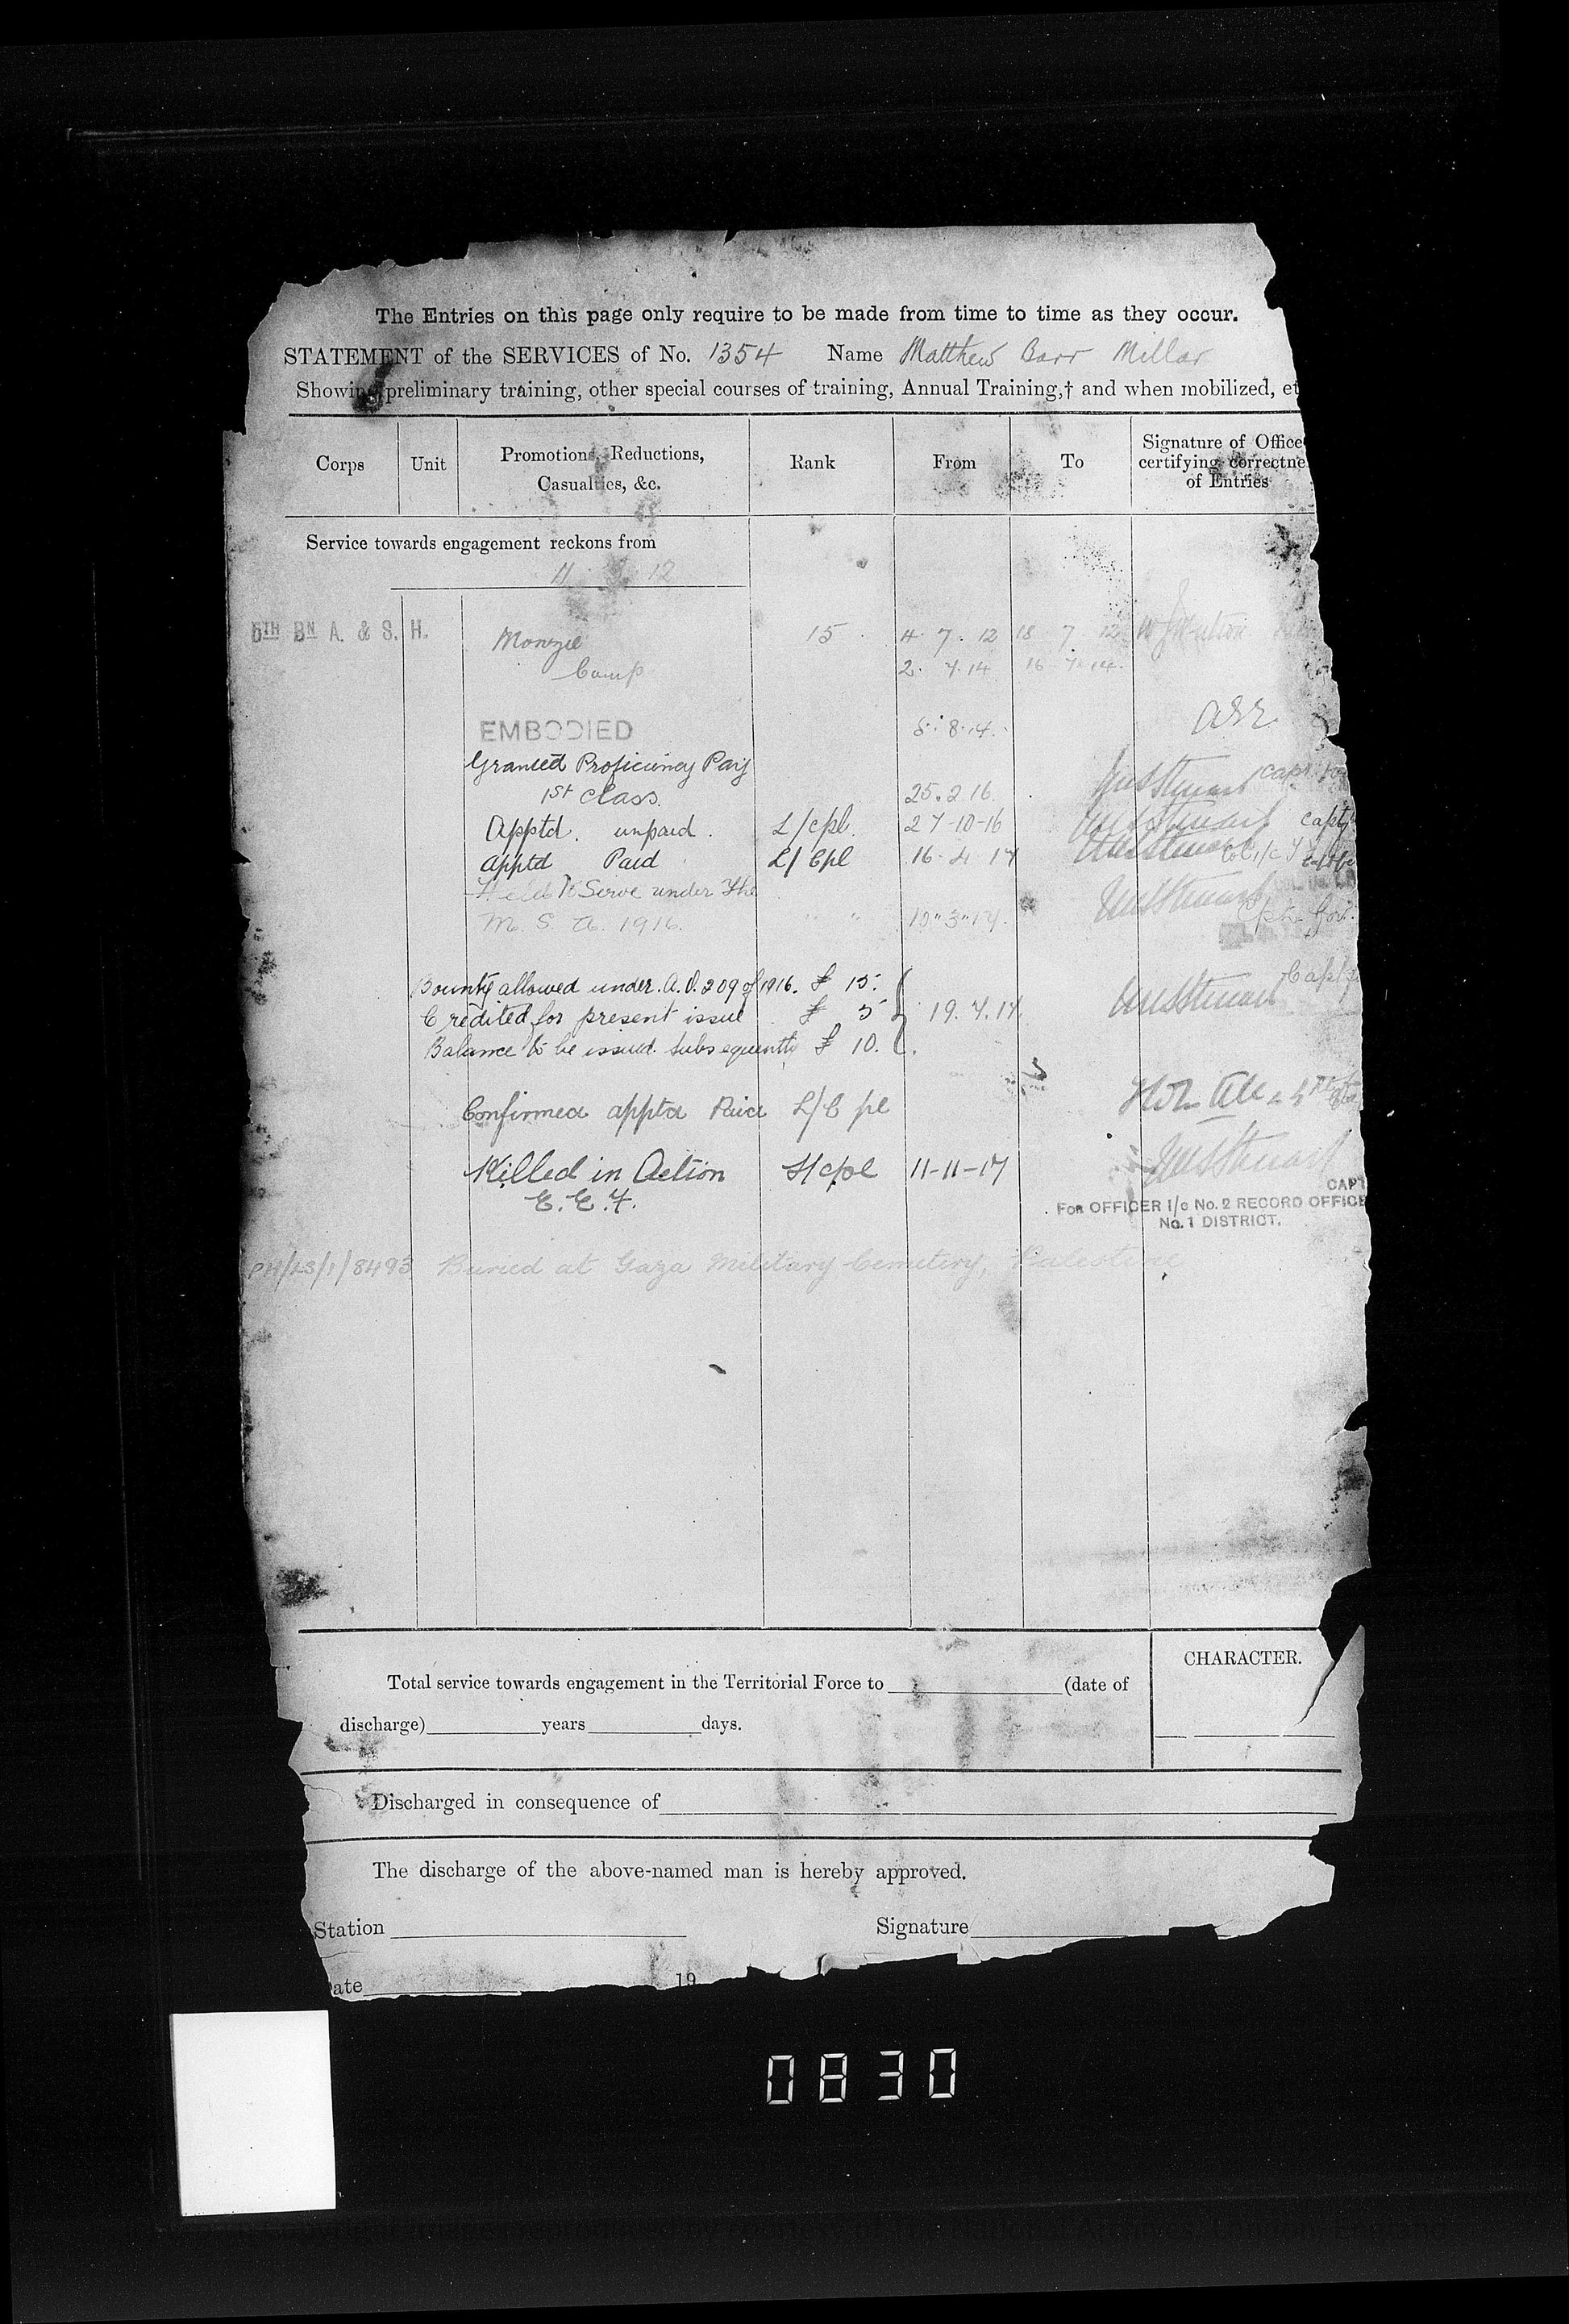 The Entries on this page only require to be made from time to time as they occur.
STATEMENT of the SERVICES of No. 1354 Name Matthew Barr Millar
Showing preliminary training, other special courses of training, Annual Training,† and when mobilized, et
Corps Unit Promotions, Reductions, Casualties, &c. Rank From To Signature of Office certifying correctne of Entries
Service towards engagement reckons from
12
5TH BN A. & S. H. Monzie 15 4. 7. 12 18 7 12
Camp 2. 7. 14 16 7 14
EMBODIED 5. 8. 14.
Granted Proficiency Pay
1st Class. 25. 2 16 Capt
Apptd. unpaid. L/cpl. 27-10-16 Capt
apptd Paid L/Cpl 16. 4 17
Held to Serve under the
M. S. A. 1916. " " 10"3"17.
Bounty allowed under. A.O. 209 of 1916. £ 15.
Credited for present issue £ 5 19. 7. 17.
Balance to be issued subsequently £ 10.
Capt
Confirmed apptd Paid L/Cpl
Killed in Action L/cpl 11-11-17
E. E. F.
CAPT
For OFFICER I/c No. 2 RECORD OFFICE
No. 1 DISTRICT.
Buried at Gaza Military Cemetery, Palestine
Total service towards engagement in the Territorial Force to (date of
discharge) years days.
CHARACTER.
Discharged in consequence of
The discharge of the above-named man is hereby approved.
Station Signature
ate 19
0830